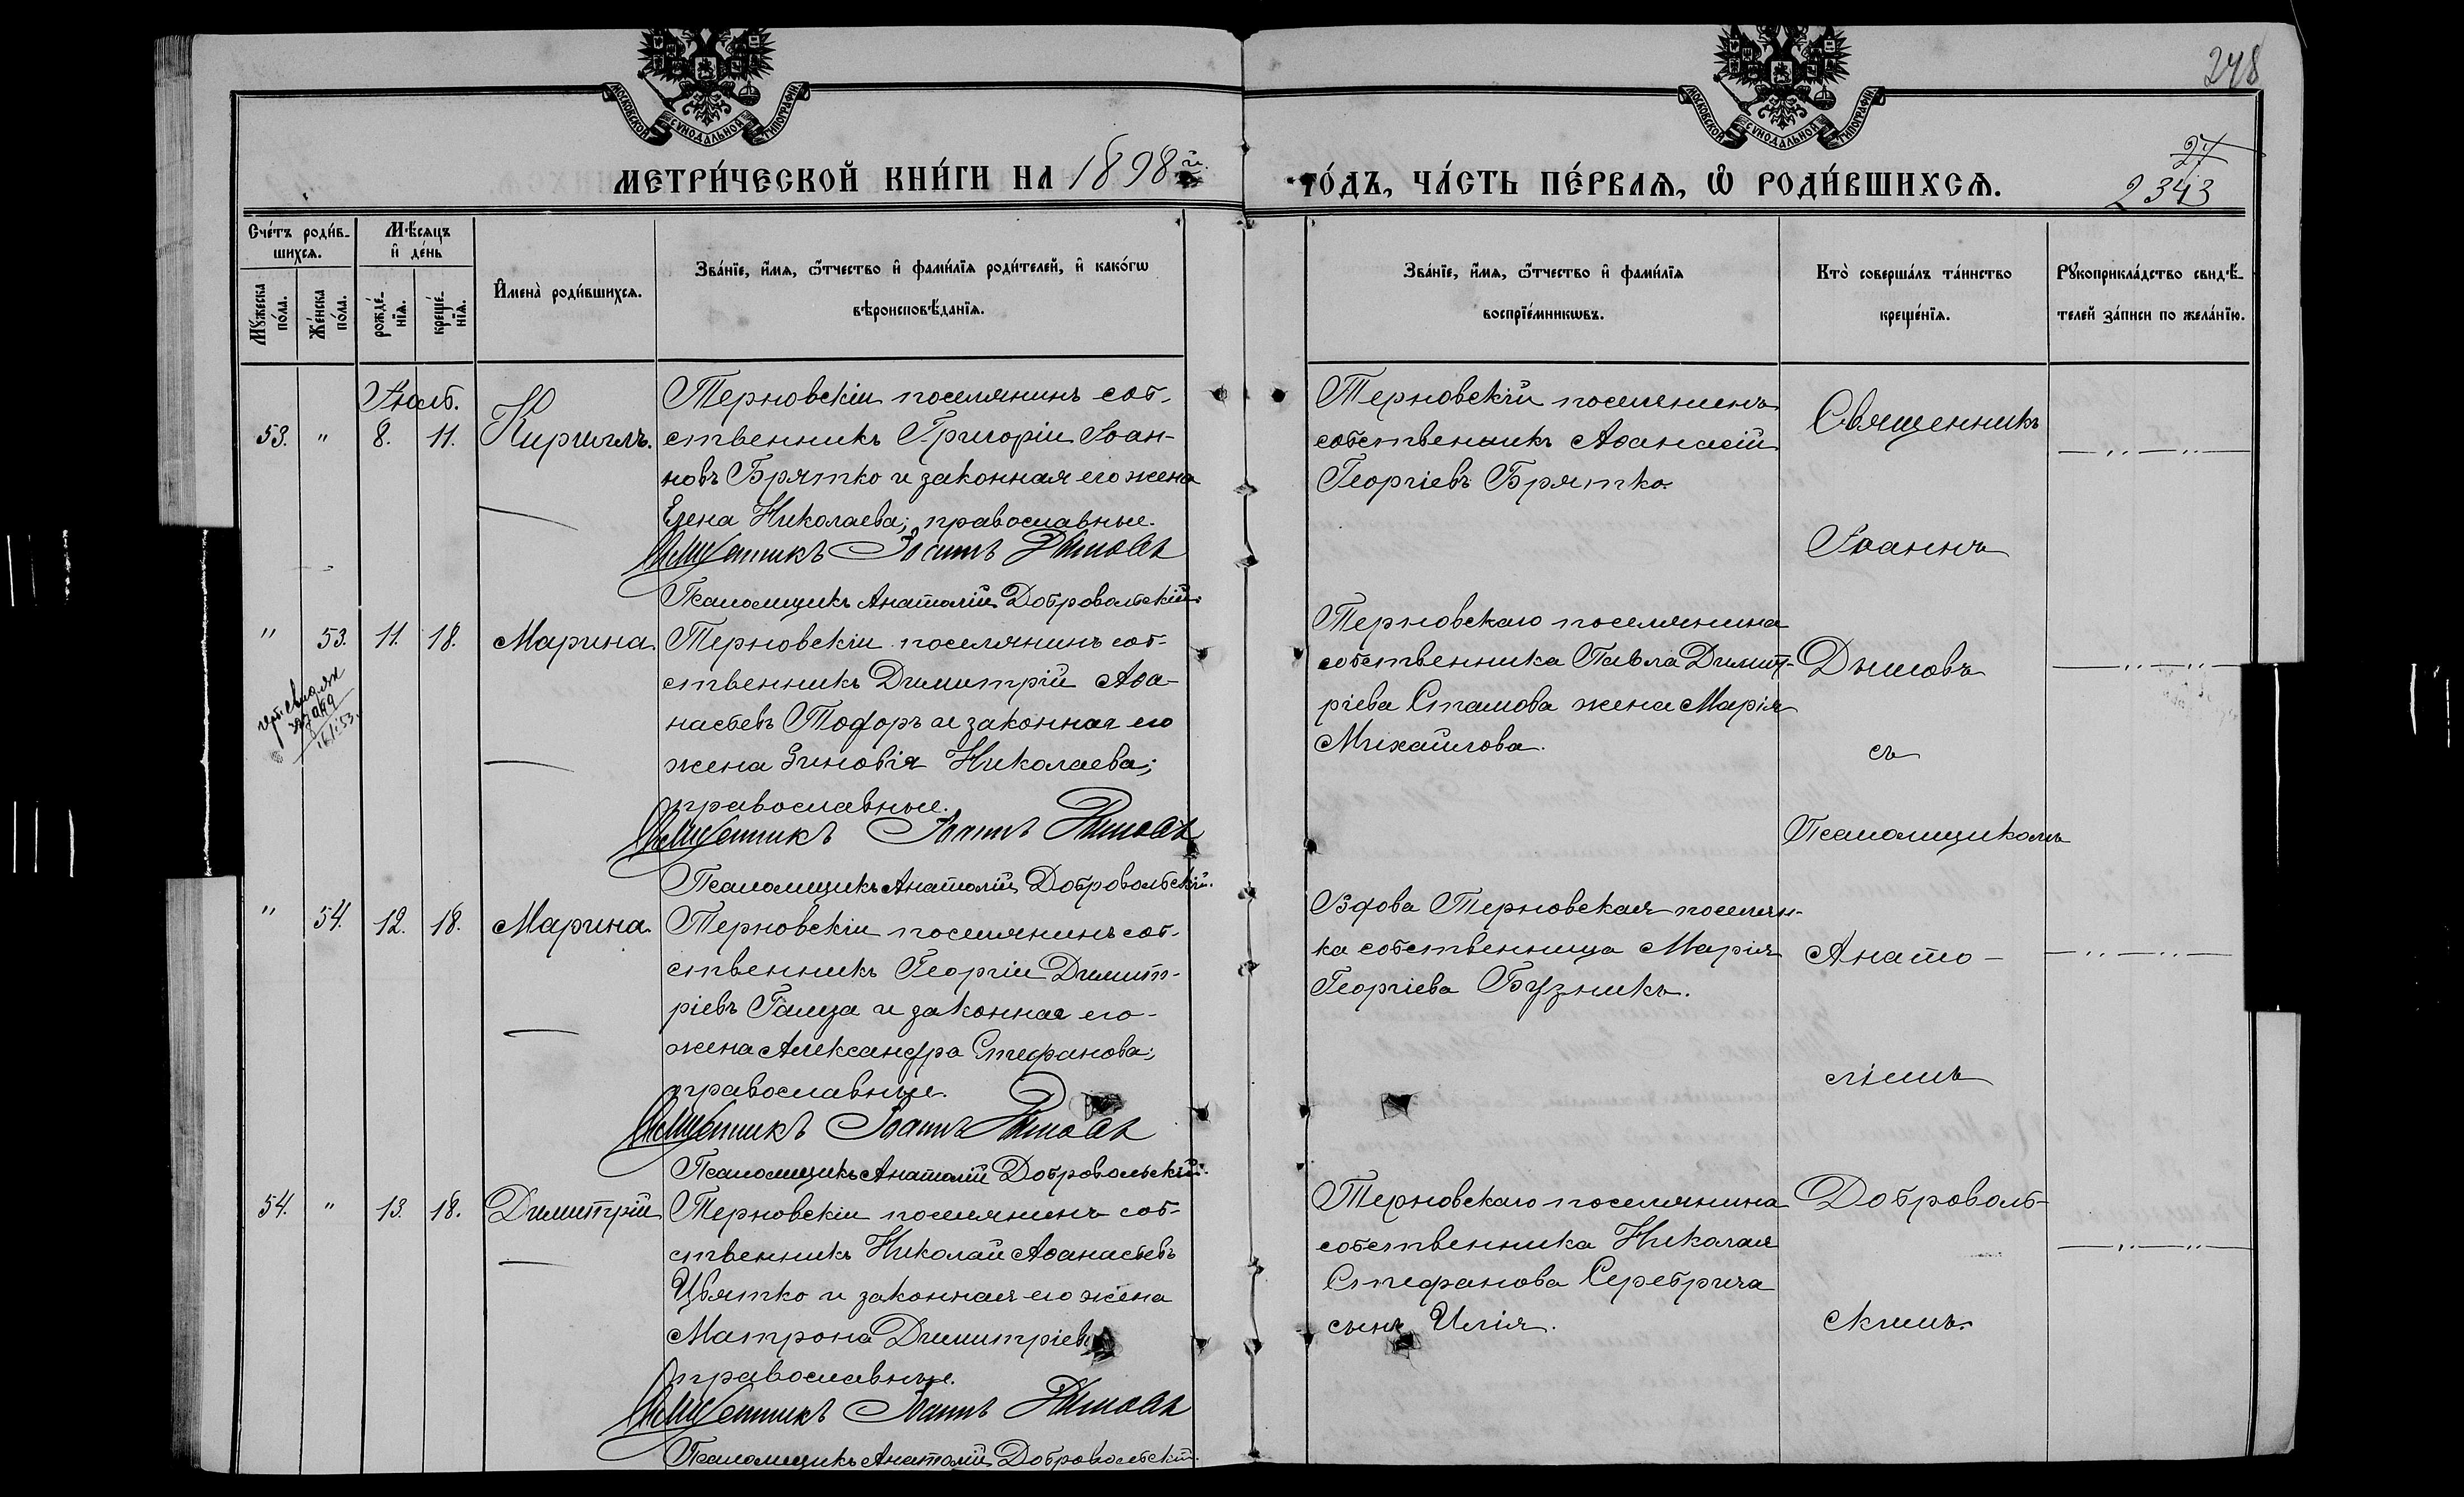 248
МОСКОВСКОЙ СУНОДАЛЬНОЙ ТИПОГРАФІИ
МОСКОВСКОЙ СУНОДАЛЬНОЙ ТИПОГРАФІИ
МЕТРИ́ЧЕСКОЙ КНИ́ГИ НА 1898й
ГО́ДЪ, ЧА́СТЬ ПЕ́РВАѦ, Ѡ҆ РОДИ́ВШИХСѦ.
27
2343
Сче́тъ роди́в-
шихсѧ.
Мꙋ́жеска по́ла.
Же́нска по́ла.
Мѣ́сѧцъ
и҆ де́нь
рожде́-
нїѧ.
креще́-
нїѧ.
И҆мена̀ роди́вшихсѧ.
Зва́нїе, и҆́мѧ, ѻ҆́тчество и҆ фами́лїѧ роди́телей, и҆ како́гѡ
вѣроисповѣ́данїѧ.
Зва́нїе, и҆́мѧ, ѻ҆́тчество и҆ фами́лїѧ
воспрїе́мникѡвъ.
Кто̀ соверша́лъ та́инство
креще́нїѧ.
Рꙋкоприкла́дство свидѣ́-
телей за́писи по жела́нїю.
Іюль.
53. " 8. 11. Кириллъ.
Терновскій поселянинъ соб-
ственникъ Григорій Іоан-
новъ Брятко и законная его жена
Елена Николаева; православные.
Священникъ Іоаннъ Дымовъ
Псаломщикъ Анатолій Добровольскій.
Терновскій поселянинъ
собственникъ Аѳанасій
Георгіевъ Брятко.
Священникъ
Іоаннъ
Дымовъ
съ
Псаломщикомъ
Анато-
ліемъ
Доброволь-
скимъ.
" 53. 11. 18. Марина.
Терновскій поселянинъ соб-
ственникъ Димитрій Аѳа-
насьевъ Тофоръ и законная его
жена Зиновія Николаева;
православные.
Священникъ Іоаннъ Дымовъ
Псаломщикъ Анатолій Добровольскій.
Терновскаго поселянина
собственника Павла Димит-
ріева Стамова жена Марія
Михайлова.
" 54. 12. 18. Марина.
Терновскій поселянинъ соб-
ственникъ Георгій Димит-
ріевъ Гамца и законная его
жена Александра Стефанова;
православные.
Священникъ Іоаннъ Дымовъ
Псаломщикъ Анатолій Добровольскій.
Вдова Терновская поселян-
ка собственница Марія
Георгіева Бузникъ.
54. " 13. 18. Димитрій
Терновскій поселянинъ соб-
ственникъ Николай Аѳанасьевъ
Цвятко и законная его жена
Матрона Димитріева
православные.
Священникъ Іоаннъ Дымовъ
Псаломщикъ Анатолій Добровольскій.
Терновскаго поселянина
собственника Николая
Стефанова Серебрича
сынъ Илія.